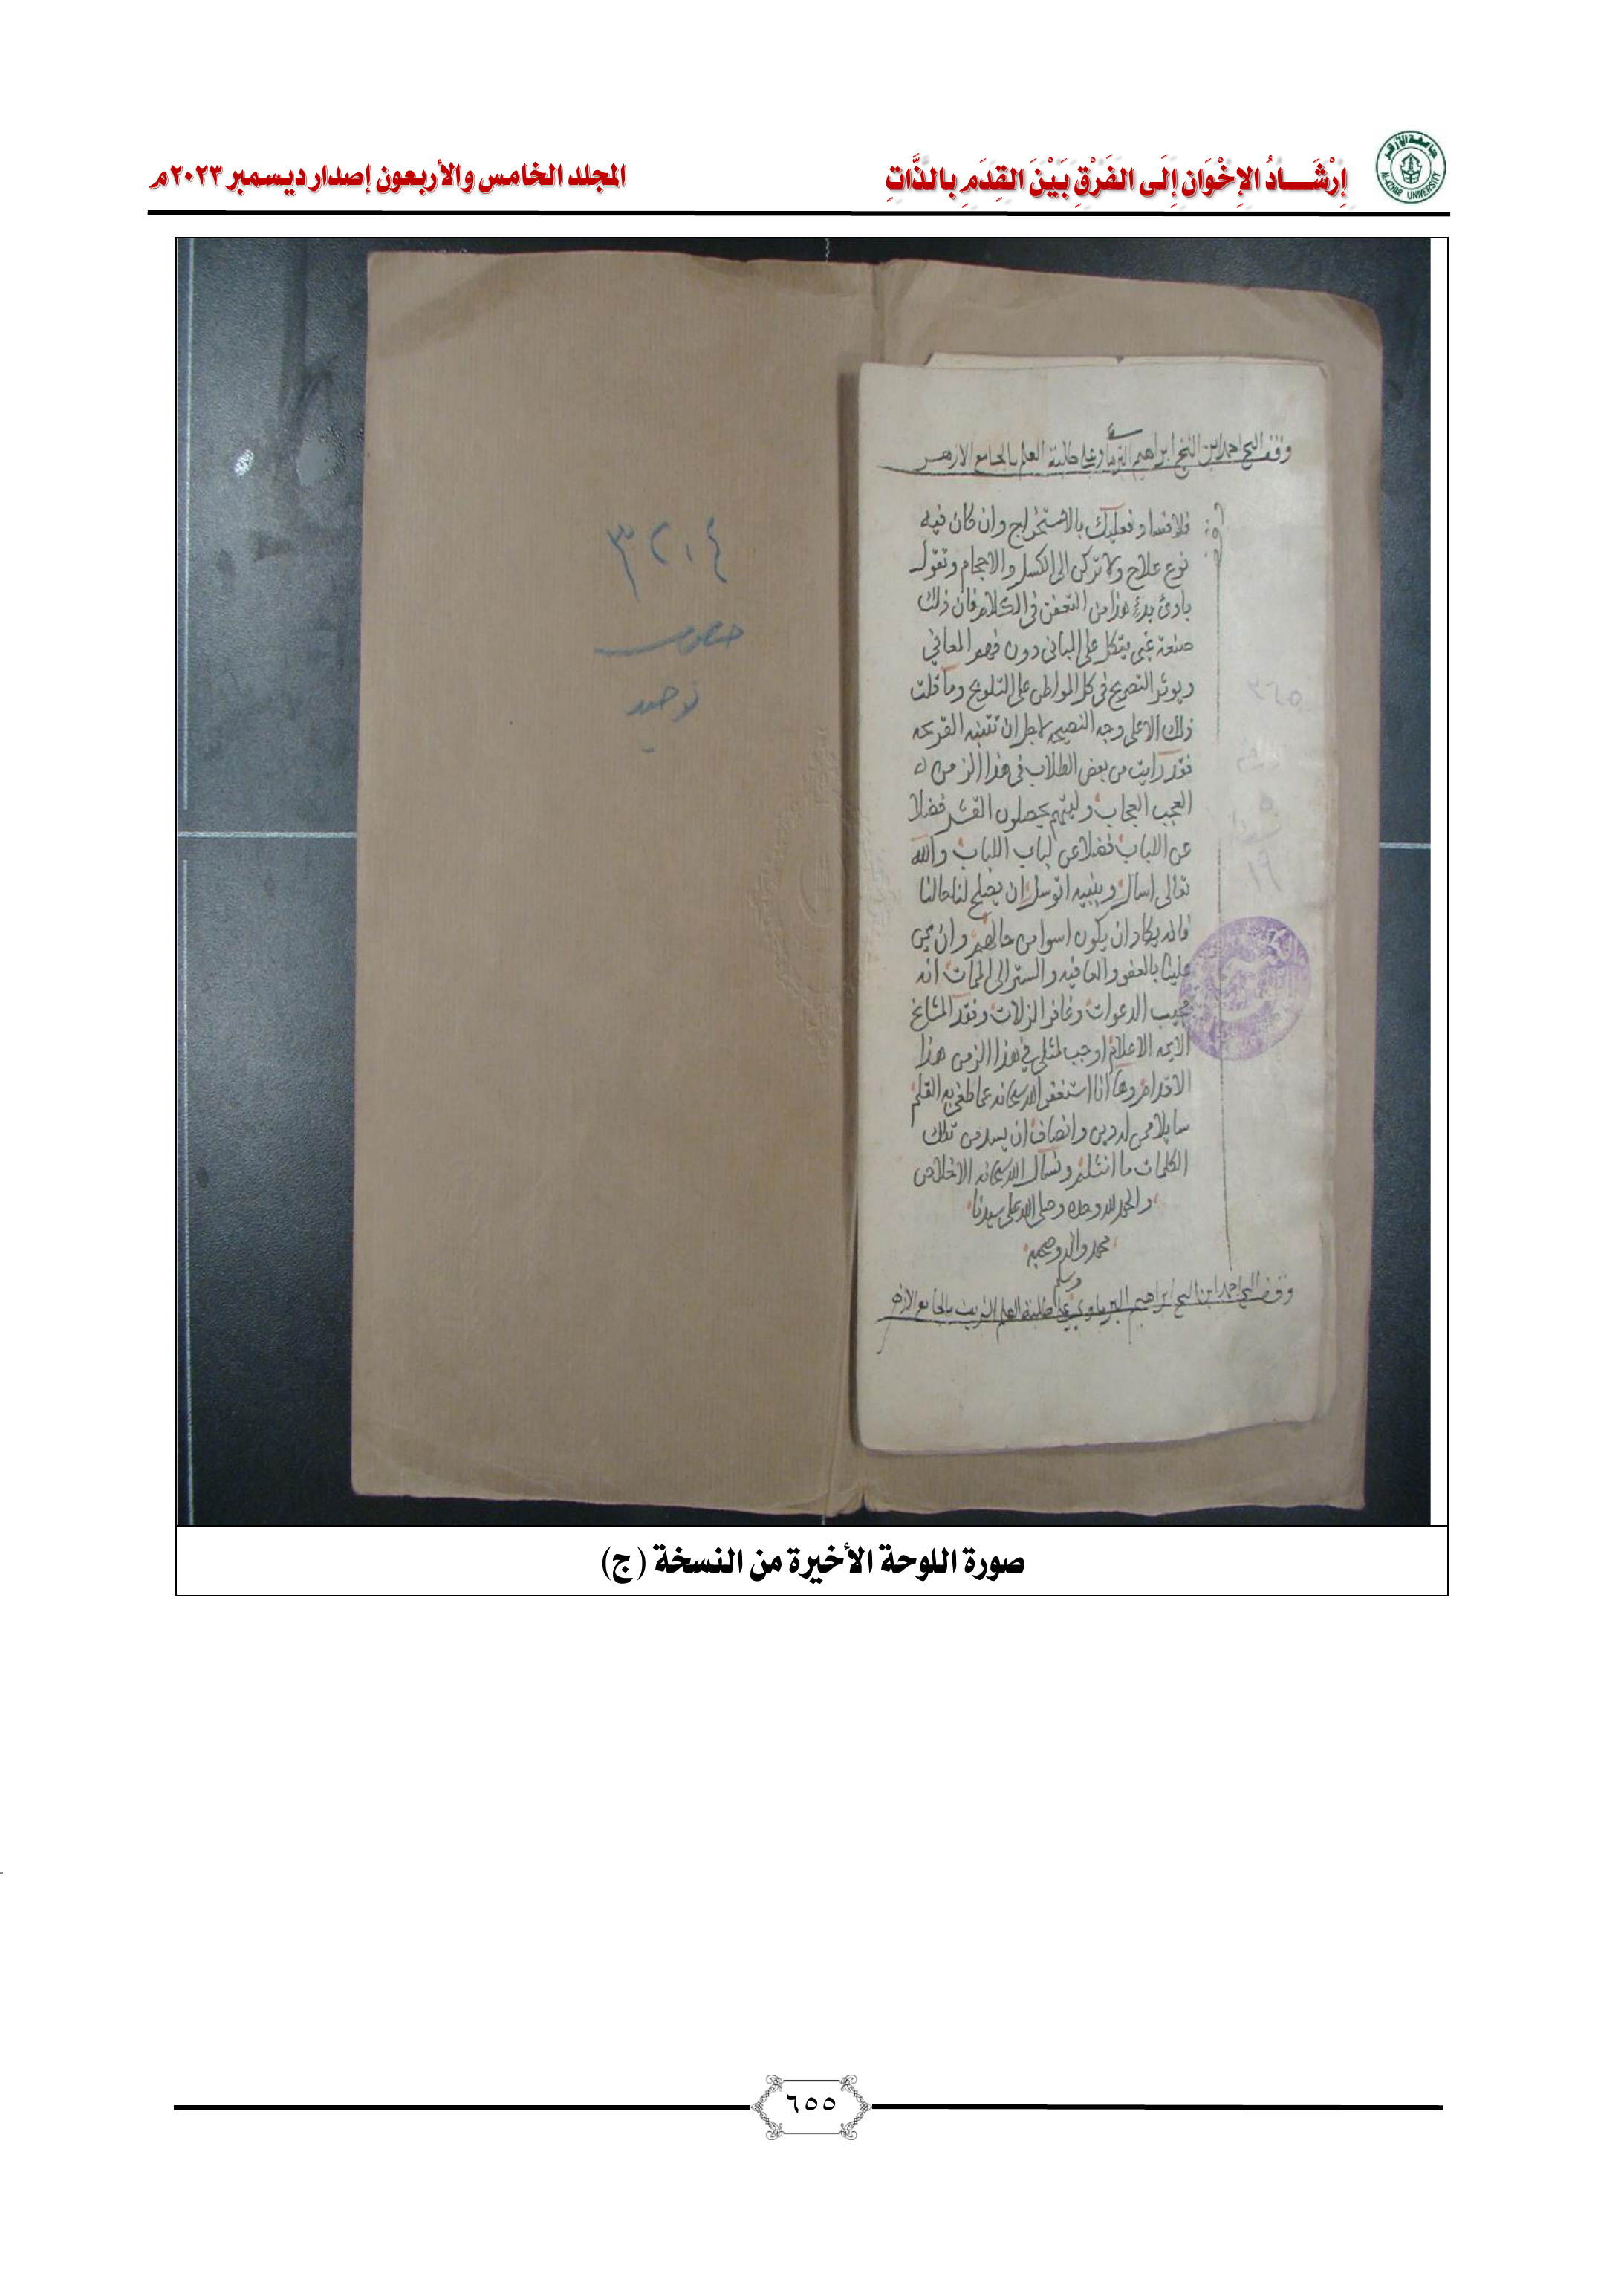 إِرْشَـــادُ الإِخْوَانِ إِلَى الفَرْقِ بَيْنَ القِدَمِ بالذَّاتِ
المجلد الخامس والأربعون إصدار ديسمبر ٢٠٢٣م
وقف الشيخ احمد ابن الشيخ ابراهيم على طلبة العلم بالجامع الازهر
فلا فساد فعليك بالاستخراج وان كان فيه
نوع علاج ولا تركن الى الكسل والاحجام وتقول
بادئ بدء هذا من التعفن في الكلام فان ذلك
صنعة غبي يتكل على المباني دون فهم المعاني
ويوثر التصريح في كل المواطن على التلويح وما قلت
ذلك الا على وجه النصيحه لاجل ان تتنبه القريحه
فقد رايت من بعض الطلاب في هذا الزمن
العجب العجاب وليتهم يحصلون القشر فضلا
عن اللباب فضلا عن لباب اللباب والله
تعالى اسال وبنبيه اتوسل ان يصلح لنا حالنا
فانه يكاد ان يكون اسوا من حالهم وان يمن
علينا بالعفو والعافيه والستر الى الممات انه
مجيب الدعوات وغافر الزلات وفقد المشايخ
الايمه الاعلام اوجب لمثلي في هذا الزمن هذا
الاقدام وها انا استغفر الله سبحانه عما طغى به القلم
سايلا ممن له دين وانصاف ان يسد من تلك
الكلمات ما انثلم ونسال الله سبحانه الاخلاص
والحمد لله وحده وصلى الله على سيدنا
محمد واله وصحبه
وسلم
وقف الشيخ احمد ابن الشيخ ابراهيم على طلبة العلم الشريف بالجامع الازهر
٣٢٠٤
توحيد
٣٢٥
١٦
صورة اللوحة الأخيرة من النسخة (ج)
٦٥٥